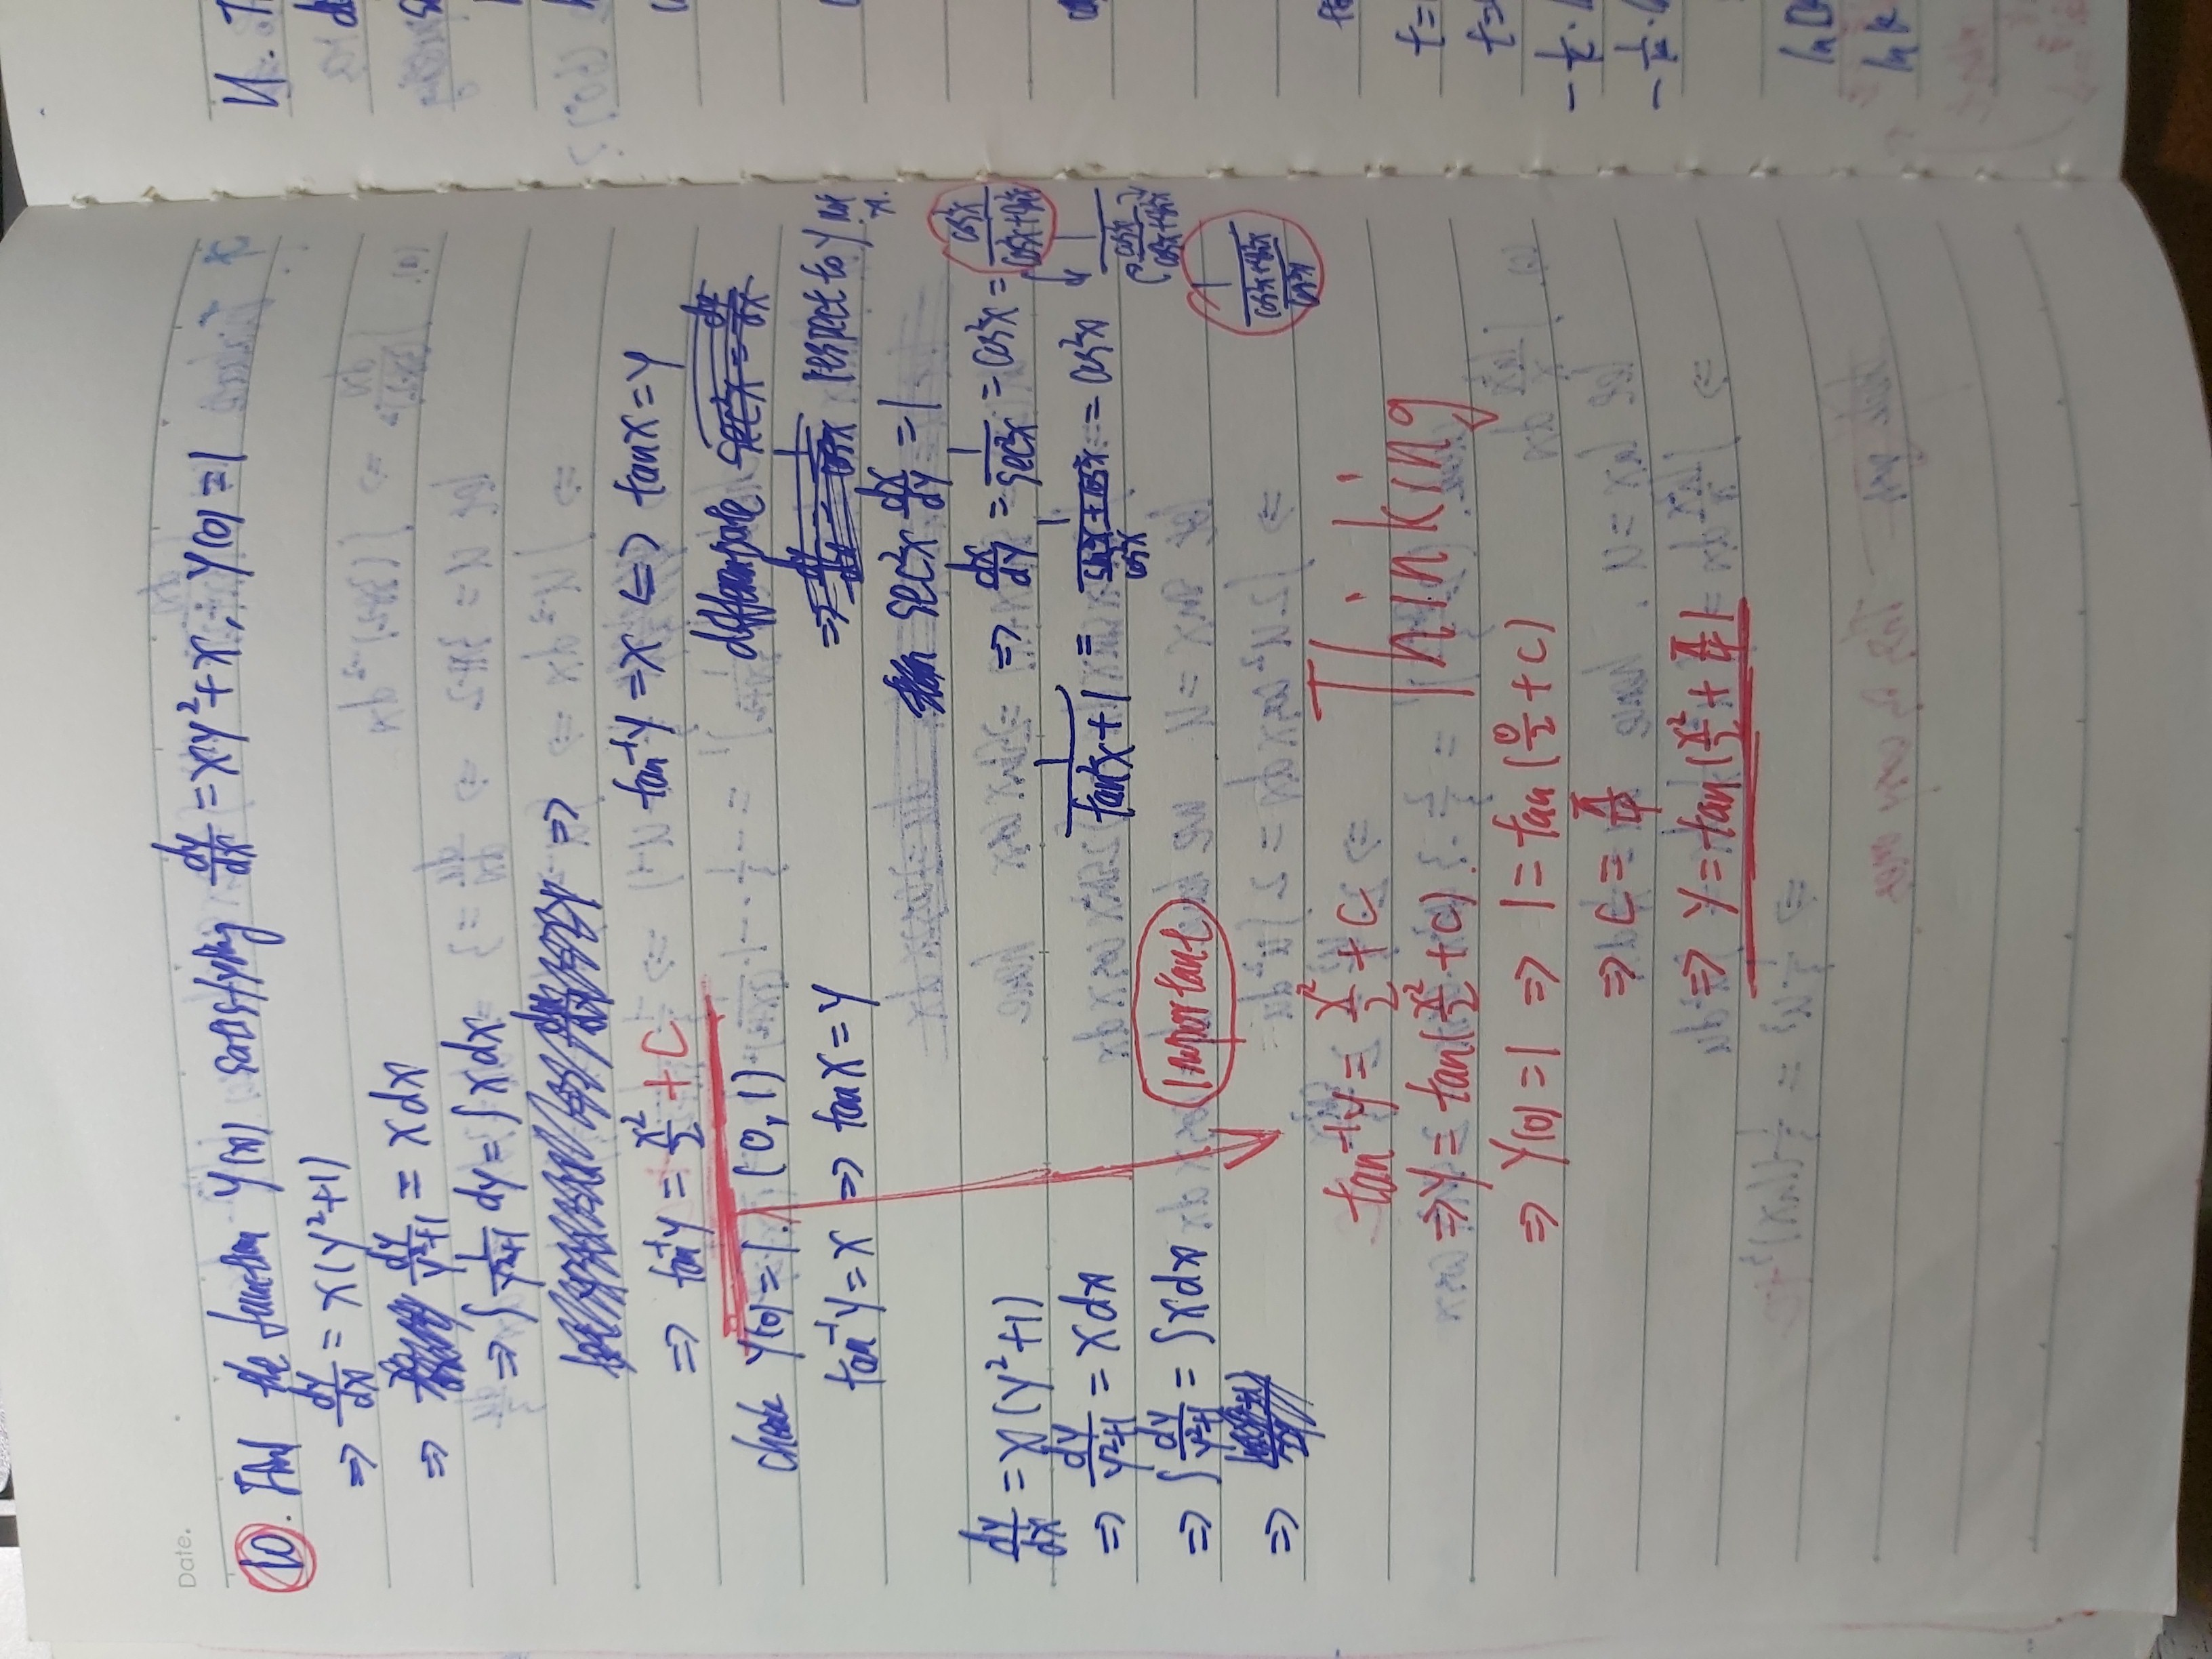 Date.
10. Find the function y(x) satisfying dy/dx = xy²+x; y(0)=1
⇒ dy/dx = x(y²+1)
⇒ dy/y²+1 = x dx
⇒ ∫ 1/y²+1 dy = ∫ x dx
⇒
⇒ tan⁻¹y = x²/2 + C
tan⁻¹y = x ⇔ tan x = y
check y(0)=1. (0,1)
tan⁻¹y = x ⇒ tan x = y
differentiate sec²x = dy/dx
⇒ respect to y not x.
sec²x dx/dy = 1
⇒ dx/dy = 1/sec²x = cos²x = cos²x/cos²x+sin²x
1/tan²x+1 = 1/(sin²x+cos²x/cos²x) = cos²x
1/(cos²x/cos²x+sin²x)
1/(cos²x+sin²x/cos²x)
dy/dx = x(y²+1)
⇒ dy/y²+1 = x dx
⇒ ∫ dy/y²+1 = ∫ x dx
⇒
Important
tan⁻¹y = x²/2 + C
⇒ y = tan(x²/2 + C).
Thinking
⇒ y(0)=1 ⇒ 1 = tan(0/2 + C)
⇒ C = π/4
⇒ y = tan(x²/2 + π/4)